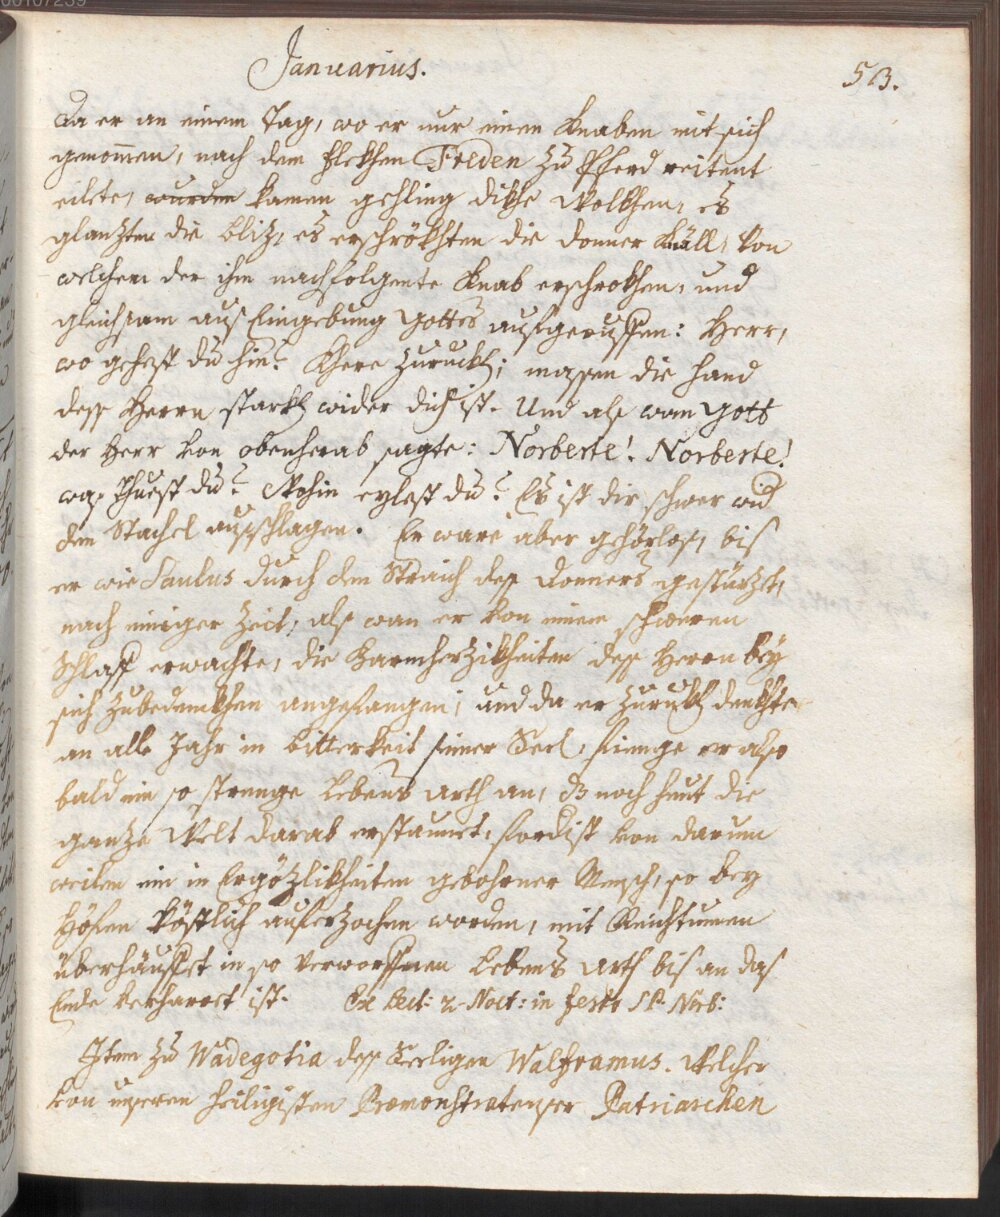 00107239
Januarius.
53.
da er an einem Tag, wo er nur einen Knaben mit sich
genom̄en, nach dem flekhen Freden zu Pferd reitent
eilete, wurden kamen gehling dikhe Wolkhen, es
glantzten die bliz, es erschrökhten die donner Knäll, von
welchem der ihm nachfolgente Knab erschrokhen, und
gleichsam auß Eingebung Gottes aufgeruffen: Herr,
wo gehest du hin? Khere zurukh; massen die hand
deß Herrn starkh wider dich ist. Und alß wan Gott
der Herr von obenherab sagte: Norberte! Norberte!
waß thuest du? Wohin eylest du? Es ist dir schwer wid
den Stachel außschlagen. Er ware aber gehörloß, bis
er wie Saulus durch den Straich deß donners gestürzt,
nach einiger Zeit, alß wan er von einem schweren
Schlaff erwachte, die Barmherzikheiten deß Herrn beÿ
sich zubedenkhen angefangen; und da er zurukh denkhte
an alle Jahr in bitterkeit seiner Seel, fienge er also
bald ein so strenge lebens arth an, dz noch heut die
ganze Welt darab erstaunet, fordist von darum
weilen ein in Ergözlikheiten gebohrner Mensch, so bey
Höfen köstlich auferzochen worden, mit Reichtumen
überhäuffet in so verworffnen lebens arth bis an das
Ende verharret ist. Ex Lect: 2. Noct: in festo SP. Norb:
Item zu Wadegotia deß Seeligen Walframus. Welcher
von unseren heiligisten Præmonstratenser Patriarchen